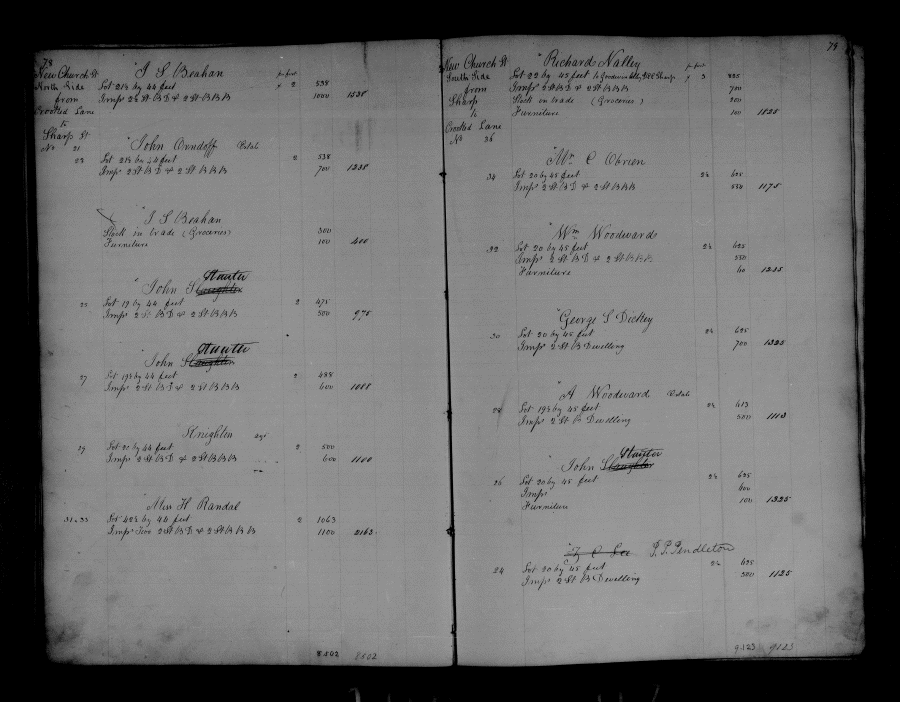 78
New Church St
North Side
from
Crooked Lane
to
Sharp St
No 21
" J S Beahan
pr foot
Lot 21½ by 44 feet × 2 538
Imp's 2½ St B D & 2 St B B B 1000 1538
" John Orndoff Estate
23 Lot 21½ by 44 feet 2 538
Imp's 2 St B D & 2 St B B B 700 1238
" J S Beahan
Stock in trade (Groceries) 300
Furniture 100 400
" John Slaughter Hunter
25 Lot 19 by 44 feet 2 475
Imp's 2 St B D & 2 St B B B 500 975
" John Slaughter Hunter
27 Lot 19½ by 44 feet 2 488
Imp's 2 St B D & 2 St B B B 600 1088
Knighton
29 Lot 20 by 44 feet 2 500
Imp's 2 St B D & 2 St B B B 600 1100
" Miss H Randal
31 & 33 Lot 42½ by 44 feet 2 1063
Imp's Two 2 St B D & 2 St B B B 1100 2163
8502 8502
79
New Church St
South Side
from
Sharp
to
Crooked Lane
No 36
" Richard Nalley
pr foot
Lot 22 by 45 feet 3 825
Imp's 2 St B D & 2 St B B B 700
Stock in trade (Groceries) 200
Furniture 100 1825
" Wm C Obrien
34 Lot 20 by 45 feet 2½ 625
Imp's 2 St B D & 2 St B B B 550 1175
" Wm Woodward
32 Lot 20 by 45 feet 2½ 625
Imp's 2 St B D & 2 St B B B 550
Furniture 60 1235
" George S Dickey
30 Lot 20 by 45 feet 2½ 625
Imp's 2 St B Dwelling 700 1325
" A Woodward Estate
28 Lot 19½ by 45 feet 2½ 613
Imp's 2 St B Dwelling 500 1113
" John Slaughter Hunter
26 Lot 20 by 45 feet 2½ 625
Imp's 600
Furniture 100 1325
" C Lee P. P. Pendleton
24 Lot 20 by 45 feet 2½ 625
Imp's 2 St B Dwelling 500 1125
9123 9123